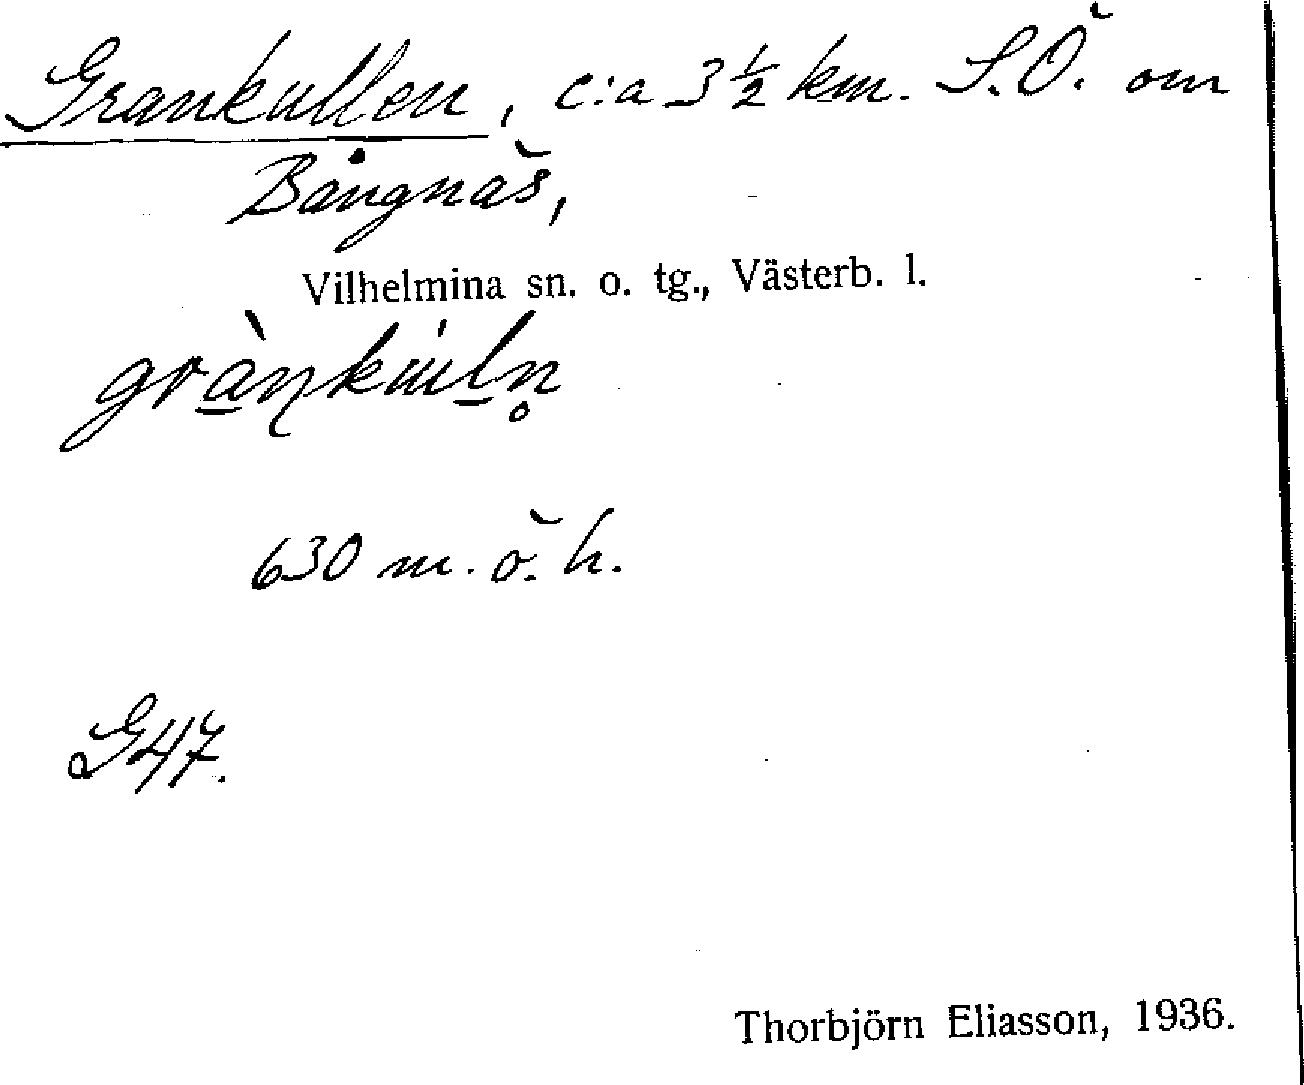 Grankullen, c:a 3½ km. S.Ö. om
Bångnäs,
Vilhelmina sn. o. tg., Västerb. l.
630 m. ö. h.
G47.
Thorbjörn Eliasson, 1936.